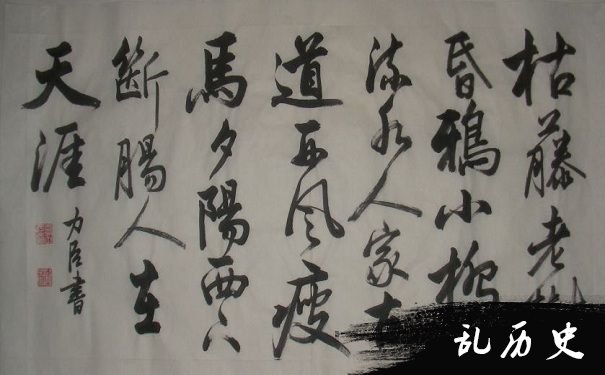 枯藤老樹
昏鴉小橋
流水人家古
道西風瘦
馬夕陽西下
斷腸人在
天涯
力臣書
乱历史